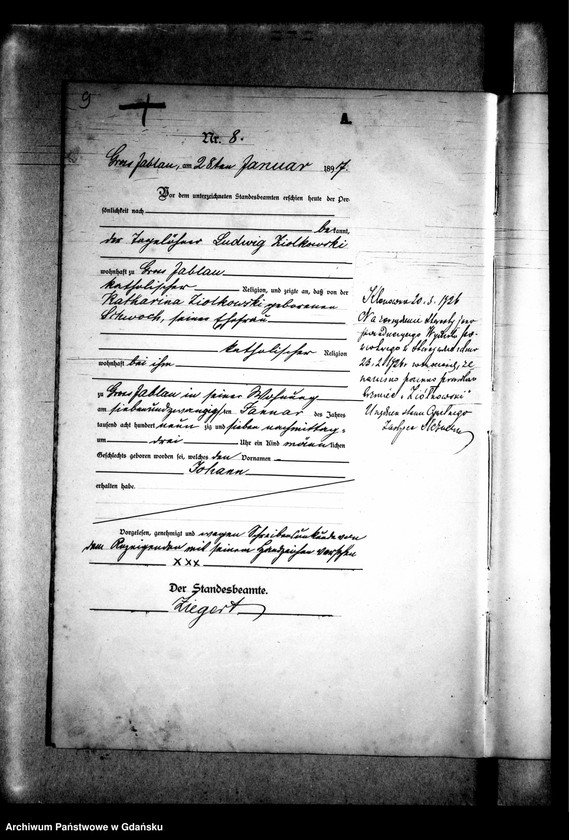 9
A.
Nr. 8.
Gross Jablau, am 28ten Januar 1897.
Vor dem unterzeichneten Standesbeamten erschien heute der Per-
sönlichkeit nach
bekannt,
der Tagelöhner Ludwig Ziolkowski
wohnhaft zu Gross Jablau
katholischer Religion, und zeigte an, daß von der
Katharina Ziolkowski geborenen
Schwoch, seiner Ehefrau
katholischer Religion
wohnhaft bei ihm
zu Gross Jablau in seiner Wohnung
am siebenundzwanzigsten Januar des Jahres
tausend acht hundert neunzig und sieben nachmittag s
um drei Uhr ein Kind männlichen
Geschlechts geboren worden sei, welches den Vornamen
Johann
erhalten habe.
Vorgelesen, genehmigt und wegen Schreibensunkunde von
dem Anzeigenden mit seinem Handzeichen versehen
XXX
Der Standesbeamte.
Ziegert
20. 3. 1926
Na zarządzenie
23. 2. 1926
nazwisko
brzmieć „Ziółkowski"
Urzędnik stanu Cywilnego
Archiwum Państwowe w Gdańsku